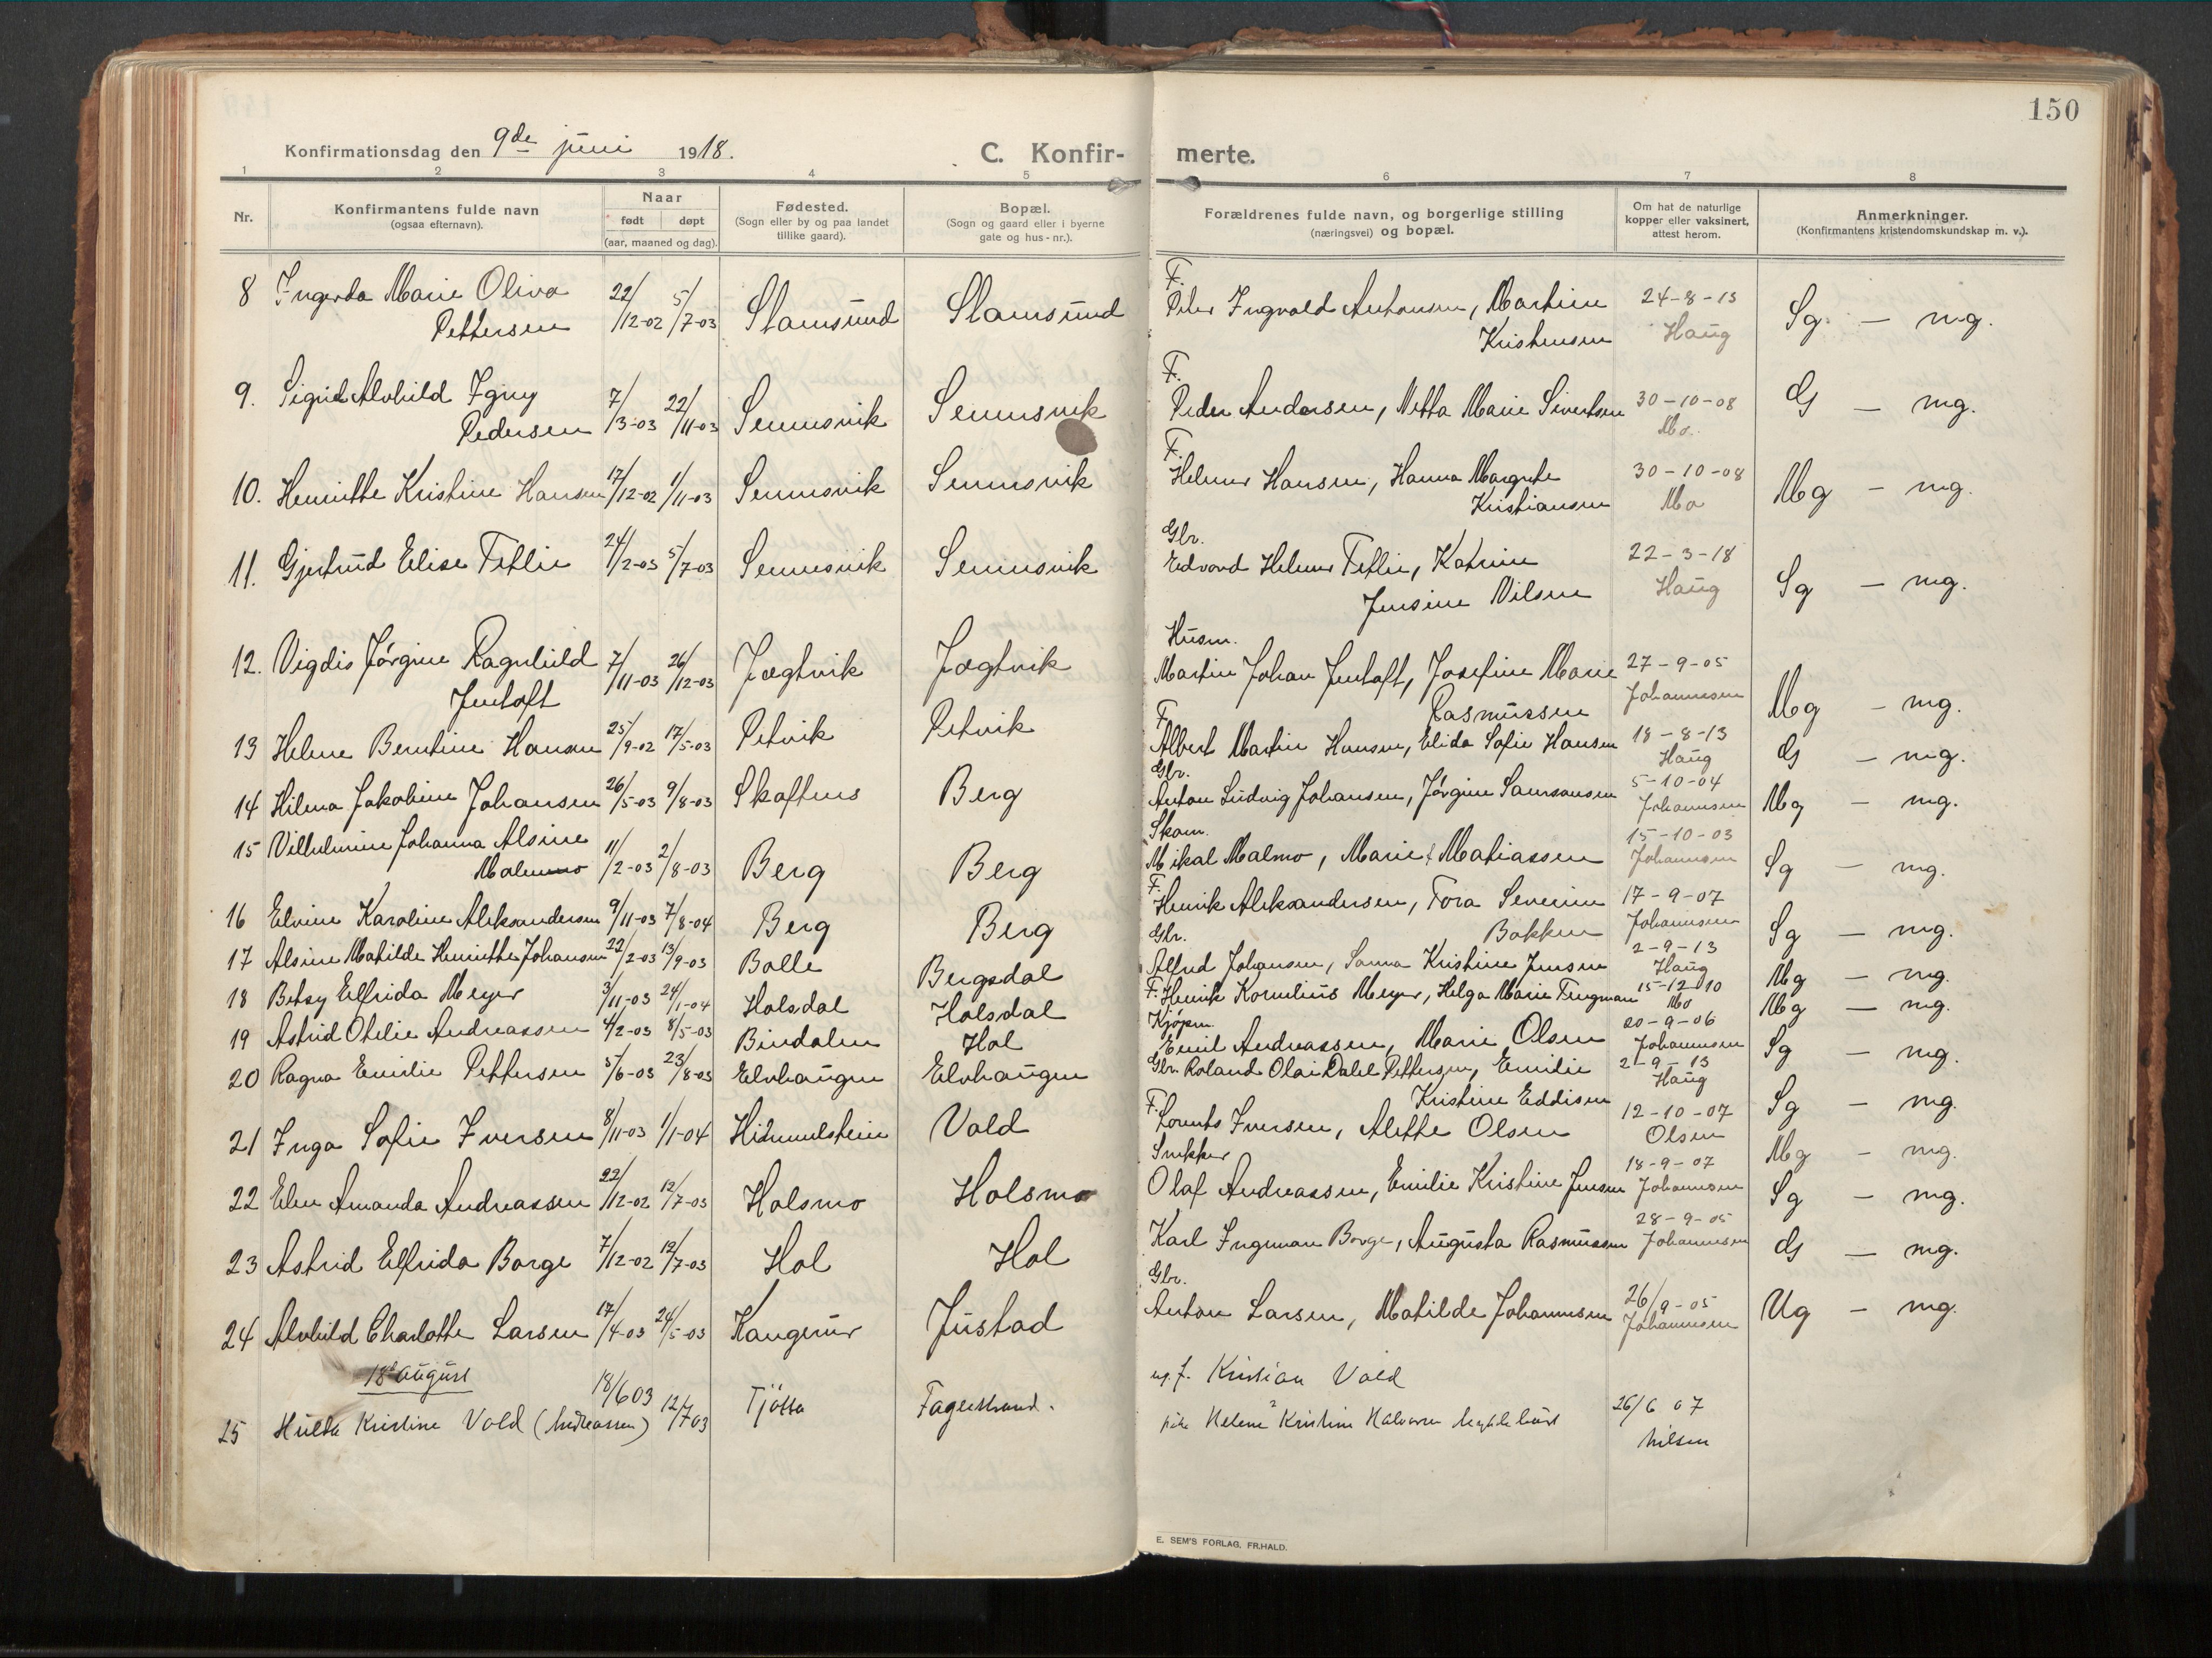 150
Konfirmationsdag den 9de juni 1918.
C. Konfir- merte.
1 2 3 4 5 6 7 8
Nr.
Konfirmantens fulde navn
(ogsaa efternavn).
Naar
født døpt
(aar, maaned og dag).
Fødested.
(Sogn eller by og paa landet
tillike gaard).
Bopæl.
(Sogn og gaard eller i byerne
gate og hus-nr.).
Forældrenes fulde navn, og borgerlige stilling
(næringsvei) og bopæl.
Om hat de naturlige
kopper eller vaksinert,
attest herom.
Anmerkninger.
(Konfirmantens kristendomskundskap m. v.).
F.
8 Ingerda Marie Oliva 22/12-02 5/7-03 Stamsund Stamsund Peter Ingvald Antonsen, Martine 24-8-13 Sg. - mg.
Pettersen Kristensen Haug
F.
9. Sigrid Alvhild Igny 7/3-03 22/11-03 Sennesvik Sennesvik Peder Andersen, Netta Marie Sivertsen 30-10-08 G - mg.
Pedersen Mo.
F.
10. Henriette Kristine Hansen 17/12-02 1/11-03 Sennesvik Sennesvik Helmer Hansen, Hanna Margrete 30-10-08 Mg - mg.
Kristiansen Mo
Gbr.
11. Gjertrud Elise Fetlie 24/2-03 5/7-03 Sennesvik Sennesvik Edvard Helmer Fetlie, Katrine 22-3-18 Sg - mg.
Jensine Nilsen Haug
Husm.
12. Vigdis Jørgine Ragnhild 7/11-03 26/12-03 Jægtvik Jægtvik Martin Johan Jentoft, Josefine Marie 27-9-05 Mg - mg.
Jentoft Rasmussen Johannesen
F.
13 Helene Berntine Hansen 25/9-02 17/5-03 Petvik Petvik Albert Martin Hansen, Elida Sofie Hansen 18-8-13 G - mg.
Haug
Gbr.
14 Hilma Jakobine Johansen 26/5-03 9/8-03 Skaftnes Berg Anton Ludvig Johansen, Jørgine Samsonsen 5-10-04 Mg - mg.
Johannesen
Skom.
15 Vilhelmine Johanna Alsine 11/2-03 2/8-03 Berg Berg Mikal Malmo, Marie Matiassen 15-10-03 Sg - mg.
Malmo Johannesen
F.
16 Elvine Karoline Aleksandersen 9/11-03 7/8-04 Berg Berg Henrik Aleksandersen, Tora Severine 17-9-07 Sg - mg.
Bakken Johannesen
Gbr.
17 Alsine Matilde Henriette Johansen 22/2-03 13/9-03 Bolle Bergsdal Alfred Johansen, Sanna Kristine Jensen 2-9-13 Mg - mg.
Haug
18 Betsy Elfrida Meyer 3/11-03 24/1-04 Holsdal Holsdal F. Henrik Kornelius Meyer, Helga Marie 15-12-10 Mg - mg.
Mo
Kjøpm.
19 Astrid Otelie Andreassen 4/2-03 8/5-03 Bindalen Hol Emil Andreassen, Marie Olsen 20-9-06 Sg - mg.
Johannesen
20 Ragna Emilie Pettersen 5/6-03 23/8-03 Elvhaugen Elvhaugen Gbr. Roland Olai Pettersen, Emilie 2-9-13 Sg - mg.
Kristine Eddisen Haug
F.
21 Inga Sofie Iversen 8/11-03 1/1-04 Himmelstein Vold Lorents Iversen, Alette Olsen 12-10-07 Mg - mg.
Olsen
Snekker
22 Elen Amanda Andreassen 22/12-02 12/7-03 Holsmo Holsmo Olaf Andreassen, Emilie Kristine Jensen 18-9-07 Sg - mg.
Johannesen
23 Astrid Elfrida Borge 7/12-02 12/7-03 Hol Hol Karl Ingman Borge, Augusta Rasmussen 28-9-05 G - mg.
Johannesen
Gbr.
24 Alvhild Charlotte Larsen 17/4-03 24/5-03 Kangerur Justad Anton Larsen, Matilde Johannesen 26/9-05 Ug - mg.
Johannesen
18de august
ug. f. Kristian Vold
25 Hulda Kristine Vold (Andreassen) 18/6 03 12/7 03 Tjötta Fagerstrand. pike Helene Kristine 26/6 07
Nilsen
E. SEM'S FORLAG, FR.HALD.